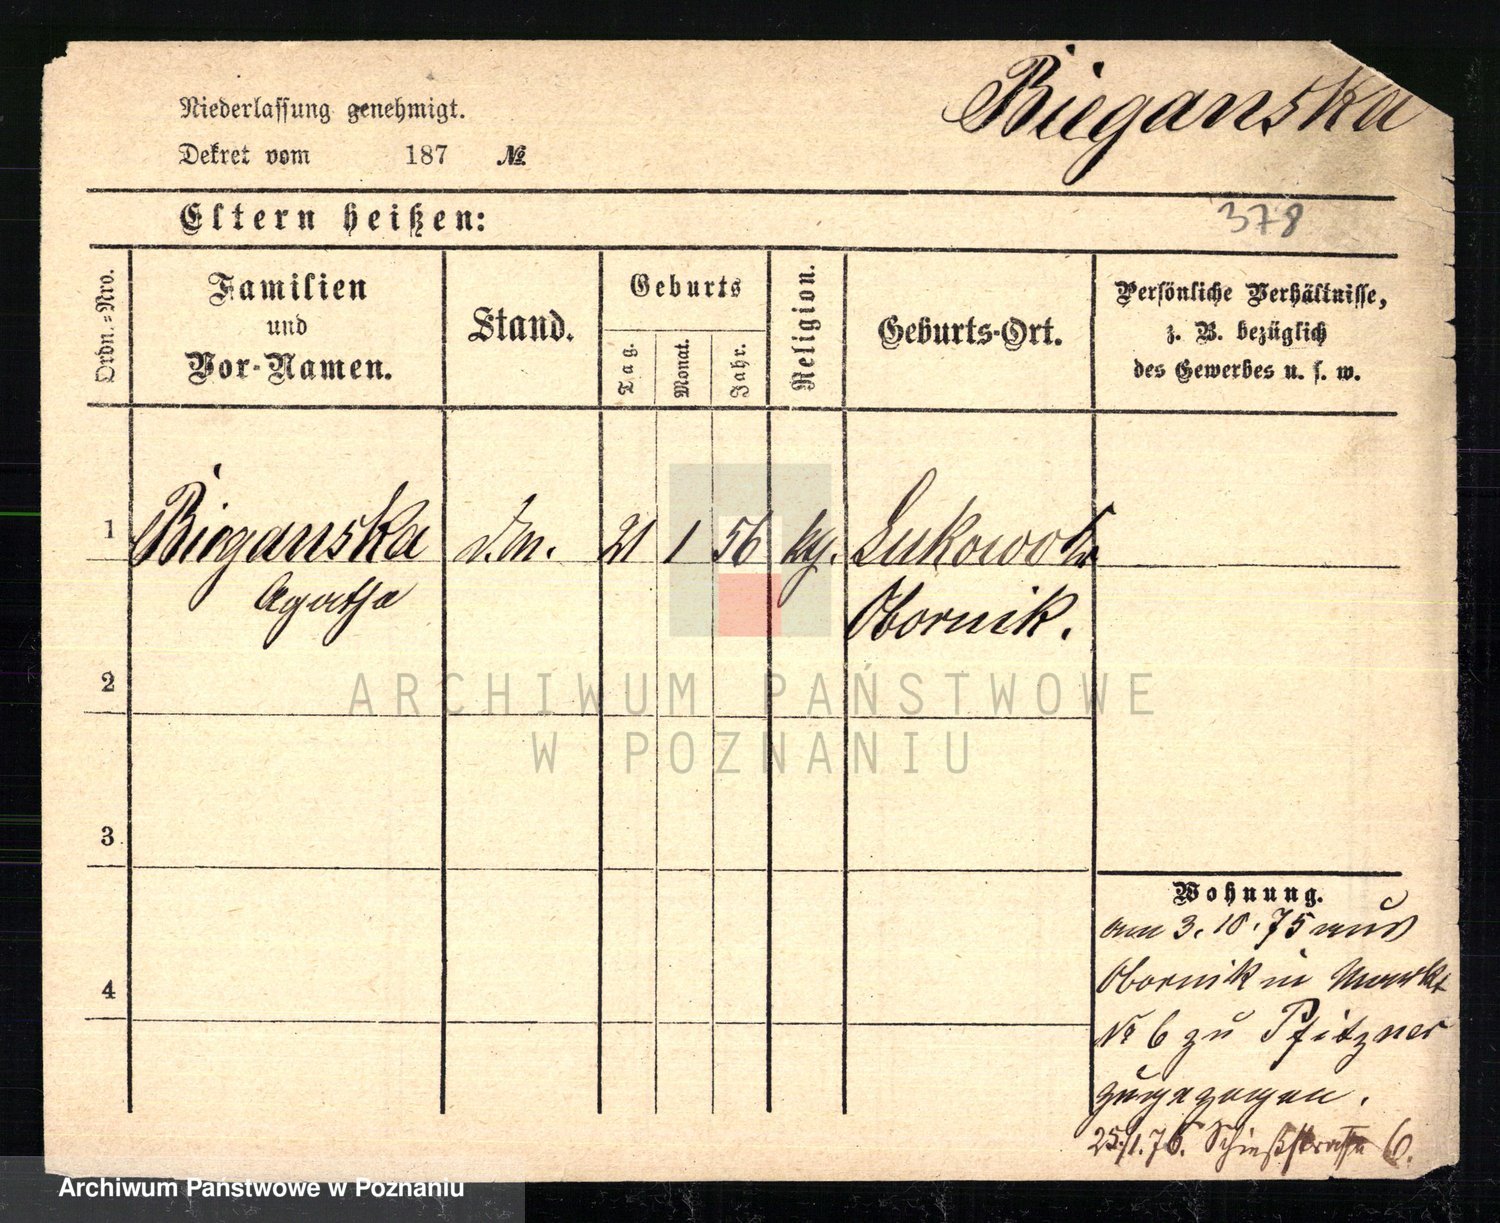 Bieganska
Niederlassung genehmigt.
Dekret vom 187 №
Eltern heißen:
378
Ordn.=Nro.
Familien
und
Vor-Namen.
Stand.
Geburts
Tag.
Monat.
Jahr.
Religion.
Geburts-Ort.
Persönliche Verhältnisse,
z. B. bezüglich
des Gewerbes u. s. w.
1 Bieganska 21 1 56 Lukowo
Agatha Obornik.
2
ARCHIWUM PAŃSTWOWE
W POZNANIU
3
Wohnung.
am 3. 10. 75 aus
Obornik in Markt
№ 6 zu Pfitzner
zugezogen.
4
25/1. 76. Schießstraße 6.
Archiwum Państwowe w Poznaniu